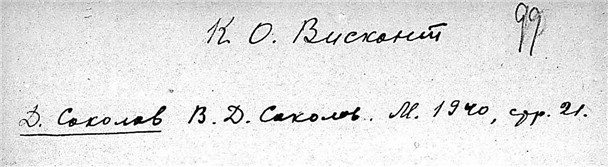 К О. Висконт 99
Д. Соколов В. Д. Соколов. М. 1940, стр. 21.